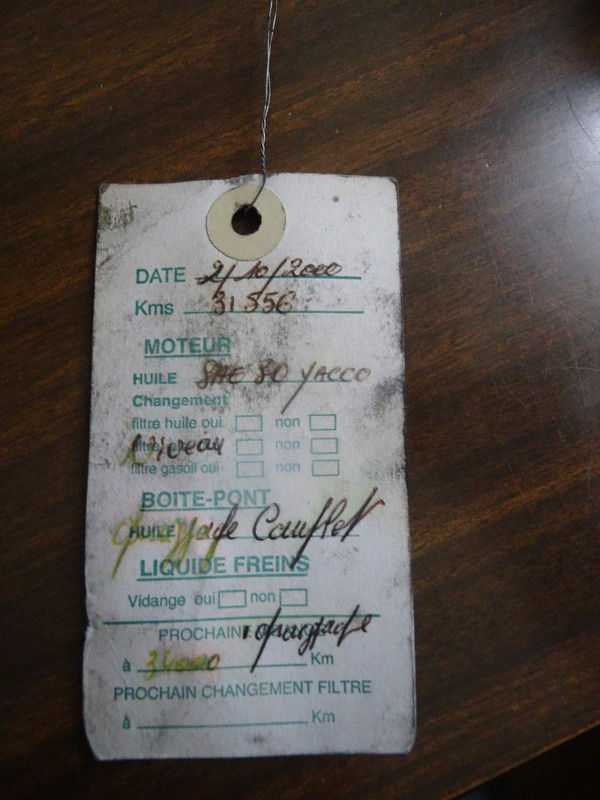 DATE 2/10/2000
Kms 31 556
MOTEUR
HUILE SAE 80 YACCO
Changement
filtre huile oui non
filtre Niveau non
filtre gasoil oui non
BOITE-PONT
HUILE graissage Complet
LIQUIDE FREINS
Vidange oui non
PROCHAIN graissage
à 34000 Km
PROCHAIN CHANGEMENT FILTRE
à Km